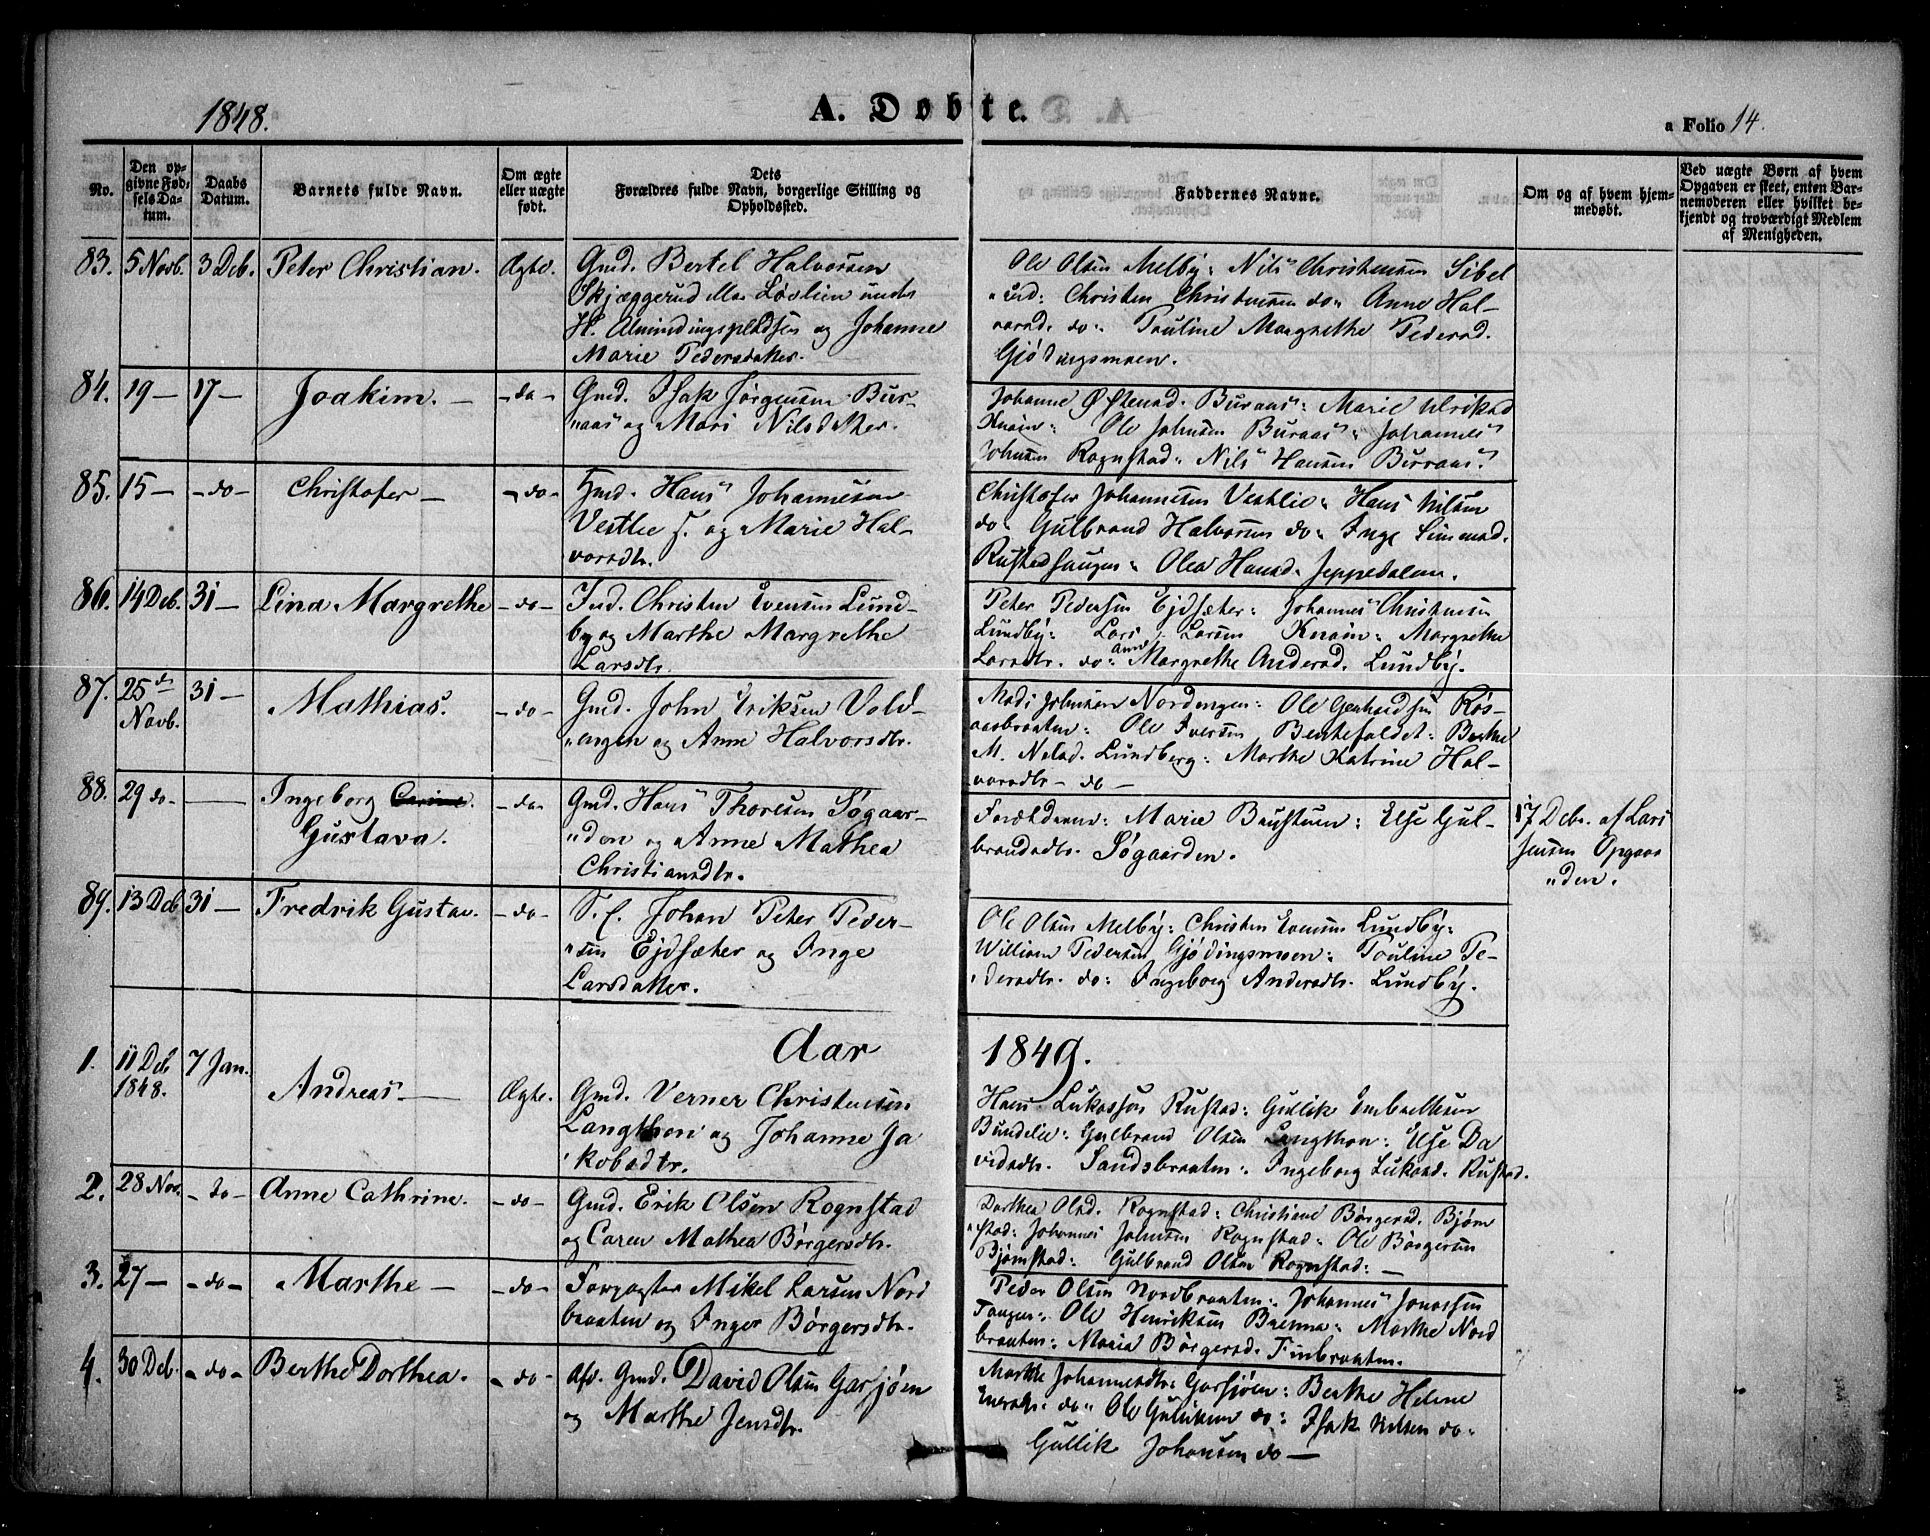 1848.
A. Døbte.
a Folio 14.
No.
Den op-
givne Fød-
sels Da-
tum.
Daabs
Datum.
Barnets fulde Navn.
Om ægte
eller uægte
født.
Dets
Forældres fulde Navn, borgerlige Stilling og
Opholdssted.
Faddernes Navne.
Om og af hvem hjem-
medøbt.
Ved uægte Børn af hvem
Opgaven er skeet, enten Bar-
nemoderen eller hvilket be-
kjendt og troværdigt Medlem
af Menigheden.
83. 5 Novb. 3 Deb. Peter Christian. Ægte.
Gmd. Bertel Halvorsen
Skjæggerud Løvlien under
H. Almindingspladsen og Johanne
Marie Pedersdatter.
Ole Olsen Melby: Nils Christensen Sibel
"rud: Christen Christensen do: Anne Hal-
vorsd. do: Pauline Margrethe Pedersd.
Gjødingsmoen.
84. 19 — 17 — Joakim. — - do -
Gmd. Isak Jørgensen Bur-
"aas og Mari Nilsdatter.
Johanne Østensd. Buraas: Marie Ulriksd
Knain: Ole Johnsen Buraas: Johannes
Johnsen Rognstad: Nils Hansen Buraas.
85. 15 — - do - Christofer — - do -
Hmd. Hans Johannesen
Vestlie og Marie Hal-
vorsdtr.
Christofer Johannesen Vestlie: Hans Nilsen
do: Gulbrand Halvorsen do: Inge Simensd.
Rustadhaugen: Olea Hansd. Jeppedalen.
86. 14 Deb. 31 — Lina Margrethe - do -
Ind. Christen Evensen Lund-
by og Marthe Margrethe
Larsdtr.
Peter Pedersen Ejdsæter: Johannes Christensen
Lundby: Lars Larsen Knain: Margrethe
Larsdtr. do: Margrethe Andersd. Lundby.
87. 25 de
Novb. 31 — Mathias. - do -
Gmd. John Eriksen Vold-
"engen og Anne Halvorsdtr.
Johnsen Nordengen: Ole Røs-
aasbraaten: Ole Iversen Bentefaldet: Berthe
M. Nilsd. Lundberg: Marthe Katrine Hal-
vorsdtr - do —
88. 29 do - — Ingeborg Carine.
Gustava. - do -
Gmd. Hans Thoresen Søgaar-
"den og Anne Mathea
Christiansdtr.
Forældrene: Marie Baustuen: Else Gul-
brandsdtr. Søgaarden.
17 Debr. af Lars
Jensen Opgaar
"den.
89. 13 Deb 31 — Fredrik Gustav. - do -
S. f. Johan Peter Peder-
"sen Ejdsæter og Inge
Larsdatter.
Ole Olsen Melby: Christen Evensen Lundby:
William Pedersen Gjødingsmoen: Pauline Pe-
"dersdtr. do: Ingeborg Andersdtr. Lundby.
Aar 1849.
1. 11 Deb
1848. 7 Jan. Andreas. — Ægte.
Gmd. Verner Christensen
Langthon og Johanne Ja
"kobsdtr.
Hans Lukassøn Rustad: Gullik Embretsen
Bundelie: Gulbrand Olsen Langthon: Else Da
vidsdtr. Sandsbraaten: Ingeborg Lukasd. Rustad.
2. 28 Nov. - do - Anne Cathrine. - do -
Gmd. Erik Olsen Rognstad
og Caren Mathea Børgersdtr.
Dorthea Olsd. Rognstad: Christiane Børgersd. Bjørn
"stad: Johannes Johnsen Rognstad: Ole Børgersen
Bjørnstad: Gulbrand Olsen Rognstad: —
3. 27 — - do - Marthe — - do -
Forpagter Mikel Larsen Nord
braaten og Inger Børgersdtr.
Peder Olsen Nordbraaten: Johannes Jonassen
Tangen: Ole Henriksen Brenna: Marthe Nord
braaten: Maria Børgersd. Finbraaten.
4. 30 Deb. - do - Berthe Dorthea. - do -
Afd. Gmd. David Olsen Garsjøen
og Marthe Jensdtr.
Marthe Johannesdtr. Garsjøen: Berthe Helene
do: Ole Gulliksen do: Isak Nilsen do:
Gullik Johansen do —